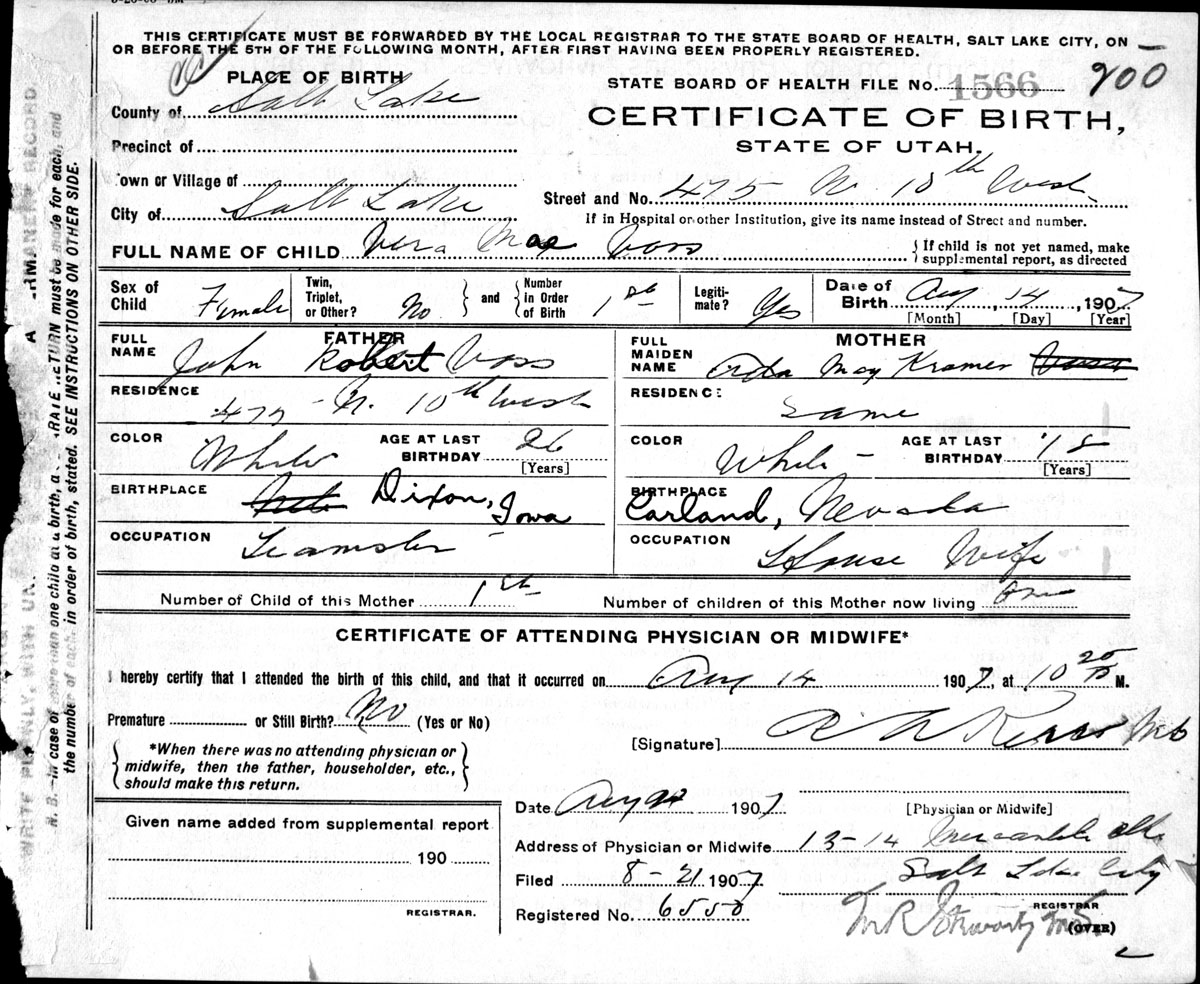 THIS CERTIFICATE MUST BE FORWARDED BY THE LOCAL REGISTRAR TO THE STATE BOARD OF HEALTH, SALT LAKE CITY, ON
OR BEFORE THE 5TH OF THE FOLLOWING MONTH, AFTER FIRST HAVING BEEN PROPERLY REGISTERED.
PLACE OF BIRTH
STATE BOARD OF HEALTH FILE NO. 1566 900
County of Salt Lake
CERTIFICATE OF BIRTH,
Precinct of
STATE OF UTAH.
Town or Village of
Street and No. 475 N. 10th West
City of Salt Lake
If in Hospital or other Institution, give its name instead of Street and number.
FULL NAME OF CHILD Vera Mae Voss
If child is not yet named, make
supplemental report, as directed
Sex of Child Female Twin, Triplet, or Other? No and Number in Order of Birth 1st Legiti-mate? Yes Date of Birth Aug 14, 1907
[Month] [Day] [Year]
FATHER
MOTHER
FULL NAME John Robert Voss
FULL MAIDEN NAME May Kramer
RESIDENCE 475 - N. 10th West
RESIDENCE Same
COLOR White AGE AT LAST BIRTHDAY 26 [Years]
COLOR White - AGE AT LAST BIRTHDAY 18 [Years]
BIRTHPLACE Dixon, Iowa
BIRTHPLACE Carland, Nevada
OCCUPATION Teamster
OCCUPATION House Wife
Number of Child of this Mother 1st
Number of children of this Mother now living One
CERTIFICATE OF ATTENDING PHYSICIAN OR MIDWIFE*
I hereby certify that I attended the birth of this child, and that it occurred on Aug 14 1907, at 10 20 P M.
Premature or Still Birth? No (Yes or No)
[Signature]
*When there was no attending physician or
midwife, then the father, householder, etc.,
should make this return.
Date Aug 1907
[Physician or Midwife]
Given name added from supplemental report
190
REGISTRAR.
Address of Physician or Midwife 13-14 Mercantile
Salt Lake City
Filed 8-21 1907
Registered No. 6550
REGISTRAR
(OVER)
WRITE PLAINLY, WITH
A PERMANENT RECORD
N. B.—In case of more than one child at a birth, a SEPARATE RETURN must be made for each, and
the number of each, in order of birth, stated. SEE INSTRUCTIONS ON OTHER SIDE.